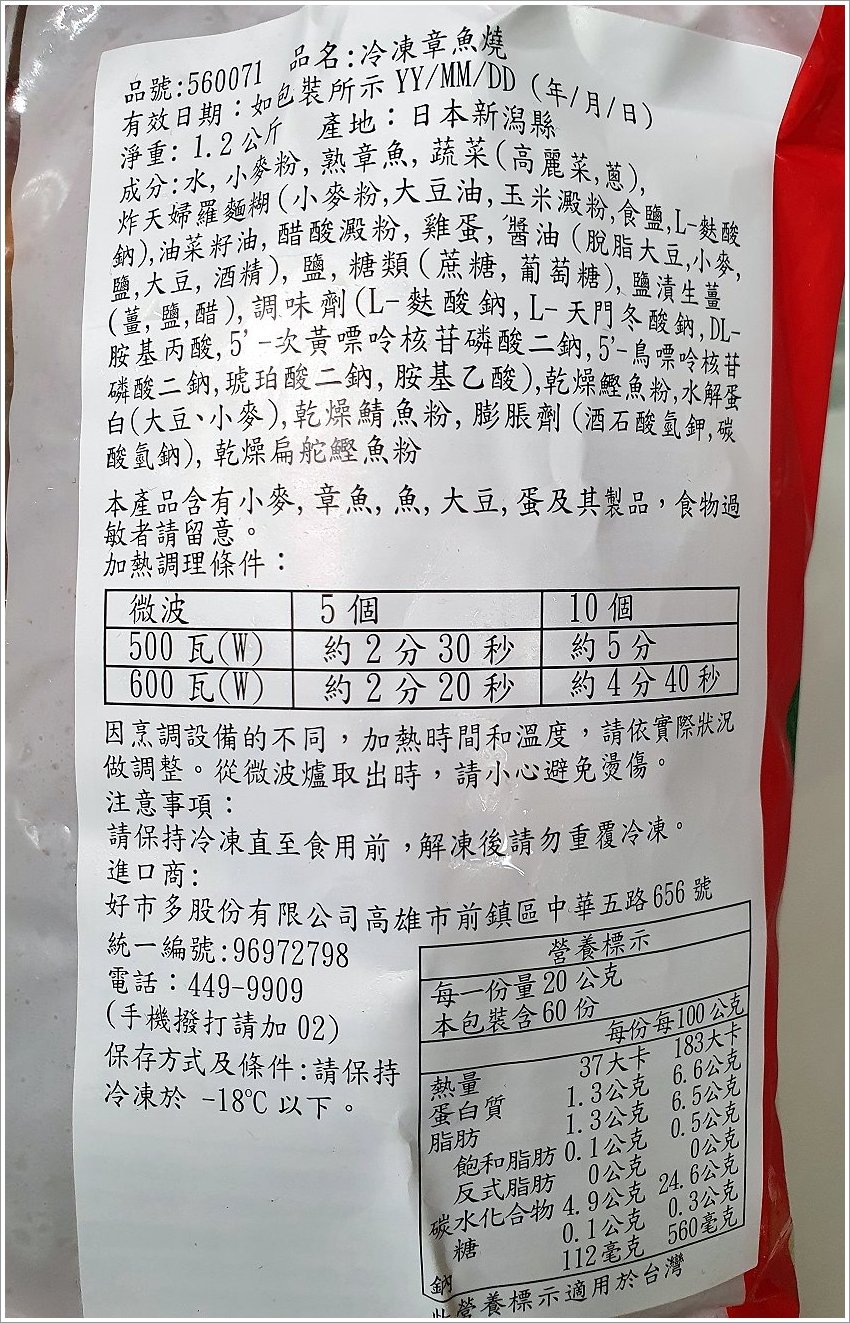 品號:560071 品名:冷凍章魚燒
有效日期：如包裝所示 YY/MM/DD (年/月/日)
淨重: 1.2 公斤 產地：日本新潟縣
成分:水, 小麥粉, 熟章魚, 蔬菜(高麗菜,蔥),
炸天婦羅麵糊(小麥粉,大豆油,玉米澱粉,食鹽,L-麩酸
鈉),油菜籽油, 醋酸澱粉, 雞蛋, 醬油 (脫脂大豆,小麥,
鹽,大豆, 酒精), 鹽, 糖類 (蔗糖, 葡萄糖), 鹽漬生薑
(薑, 鹽,醋), 調味劑(L-麩酸鈉, L-天門冬酸鈉, DL-
胺基丙酸, 5'-次黃嘌呤核苷磷酸二鈉, 5'-鳥嘌呤核苷
磷酸二鈉, 琥珀酸二鈉, 胺基乙酸),乾燥鰹魚粉,水解蛋
白(大豆、小麥),乾燥鯖魚粉, 膨脹劑 (酒石酸氫鉀,碳
酸氫鈉), 乾燥扁舵鰹魚粉
本產品含有小麥, 章魚, 魚, 大豆, 蛋及其製品，食物過
敏者請留意。
加熱調理條件：
微波 5 個 10 個
500 瓦(W) 約 2 分 30 秒 約 5 分
600 瓦(W) 約 2 分 20 秒 約 4 分 40 秒
因烹調設備的不同，加熱時間和溫度，請依實際狀況
做調整。從微波爐取出時，請小心避免燙傷。
注意事項：
請保持冷凍直至食用前，解凍後請勿重覆冷凍。
進口商:
好市多股份有限公司高雄市前鎮區中華五路 656 號
統一編號:96972798
電話：449-9909
(手機撥打請加 02)
保存方式及條件:請保持
冷凍於 -18℃ 以下。
營養標示
每一份量 20 公克
本包裝含 60 份
每份 每100 公克
熱量 37大卡 183大卡
蛋白質 1.3公克 6.6公克
脂肪 1.3公克 6.5公克
飽和脂肪 0.1公克 0.5公克
反式脂肪 0公克 0公克
碳水化合物 4.9公克 24.6公克
糖 0.1公克 0.3公克
鈉 112毫克 560毫克
此營養標示適用於台灣